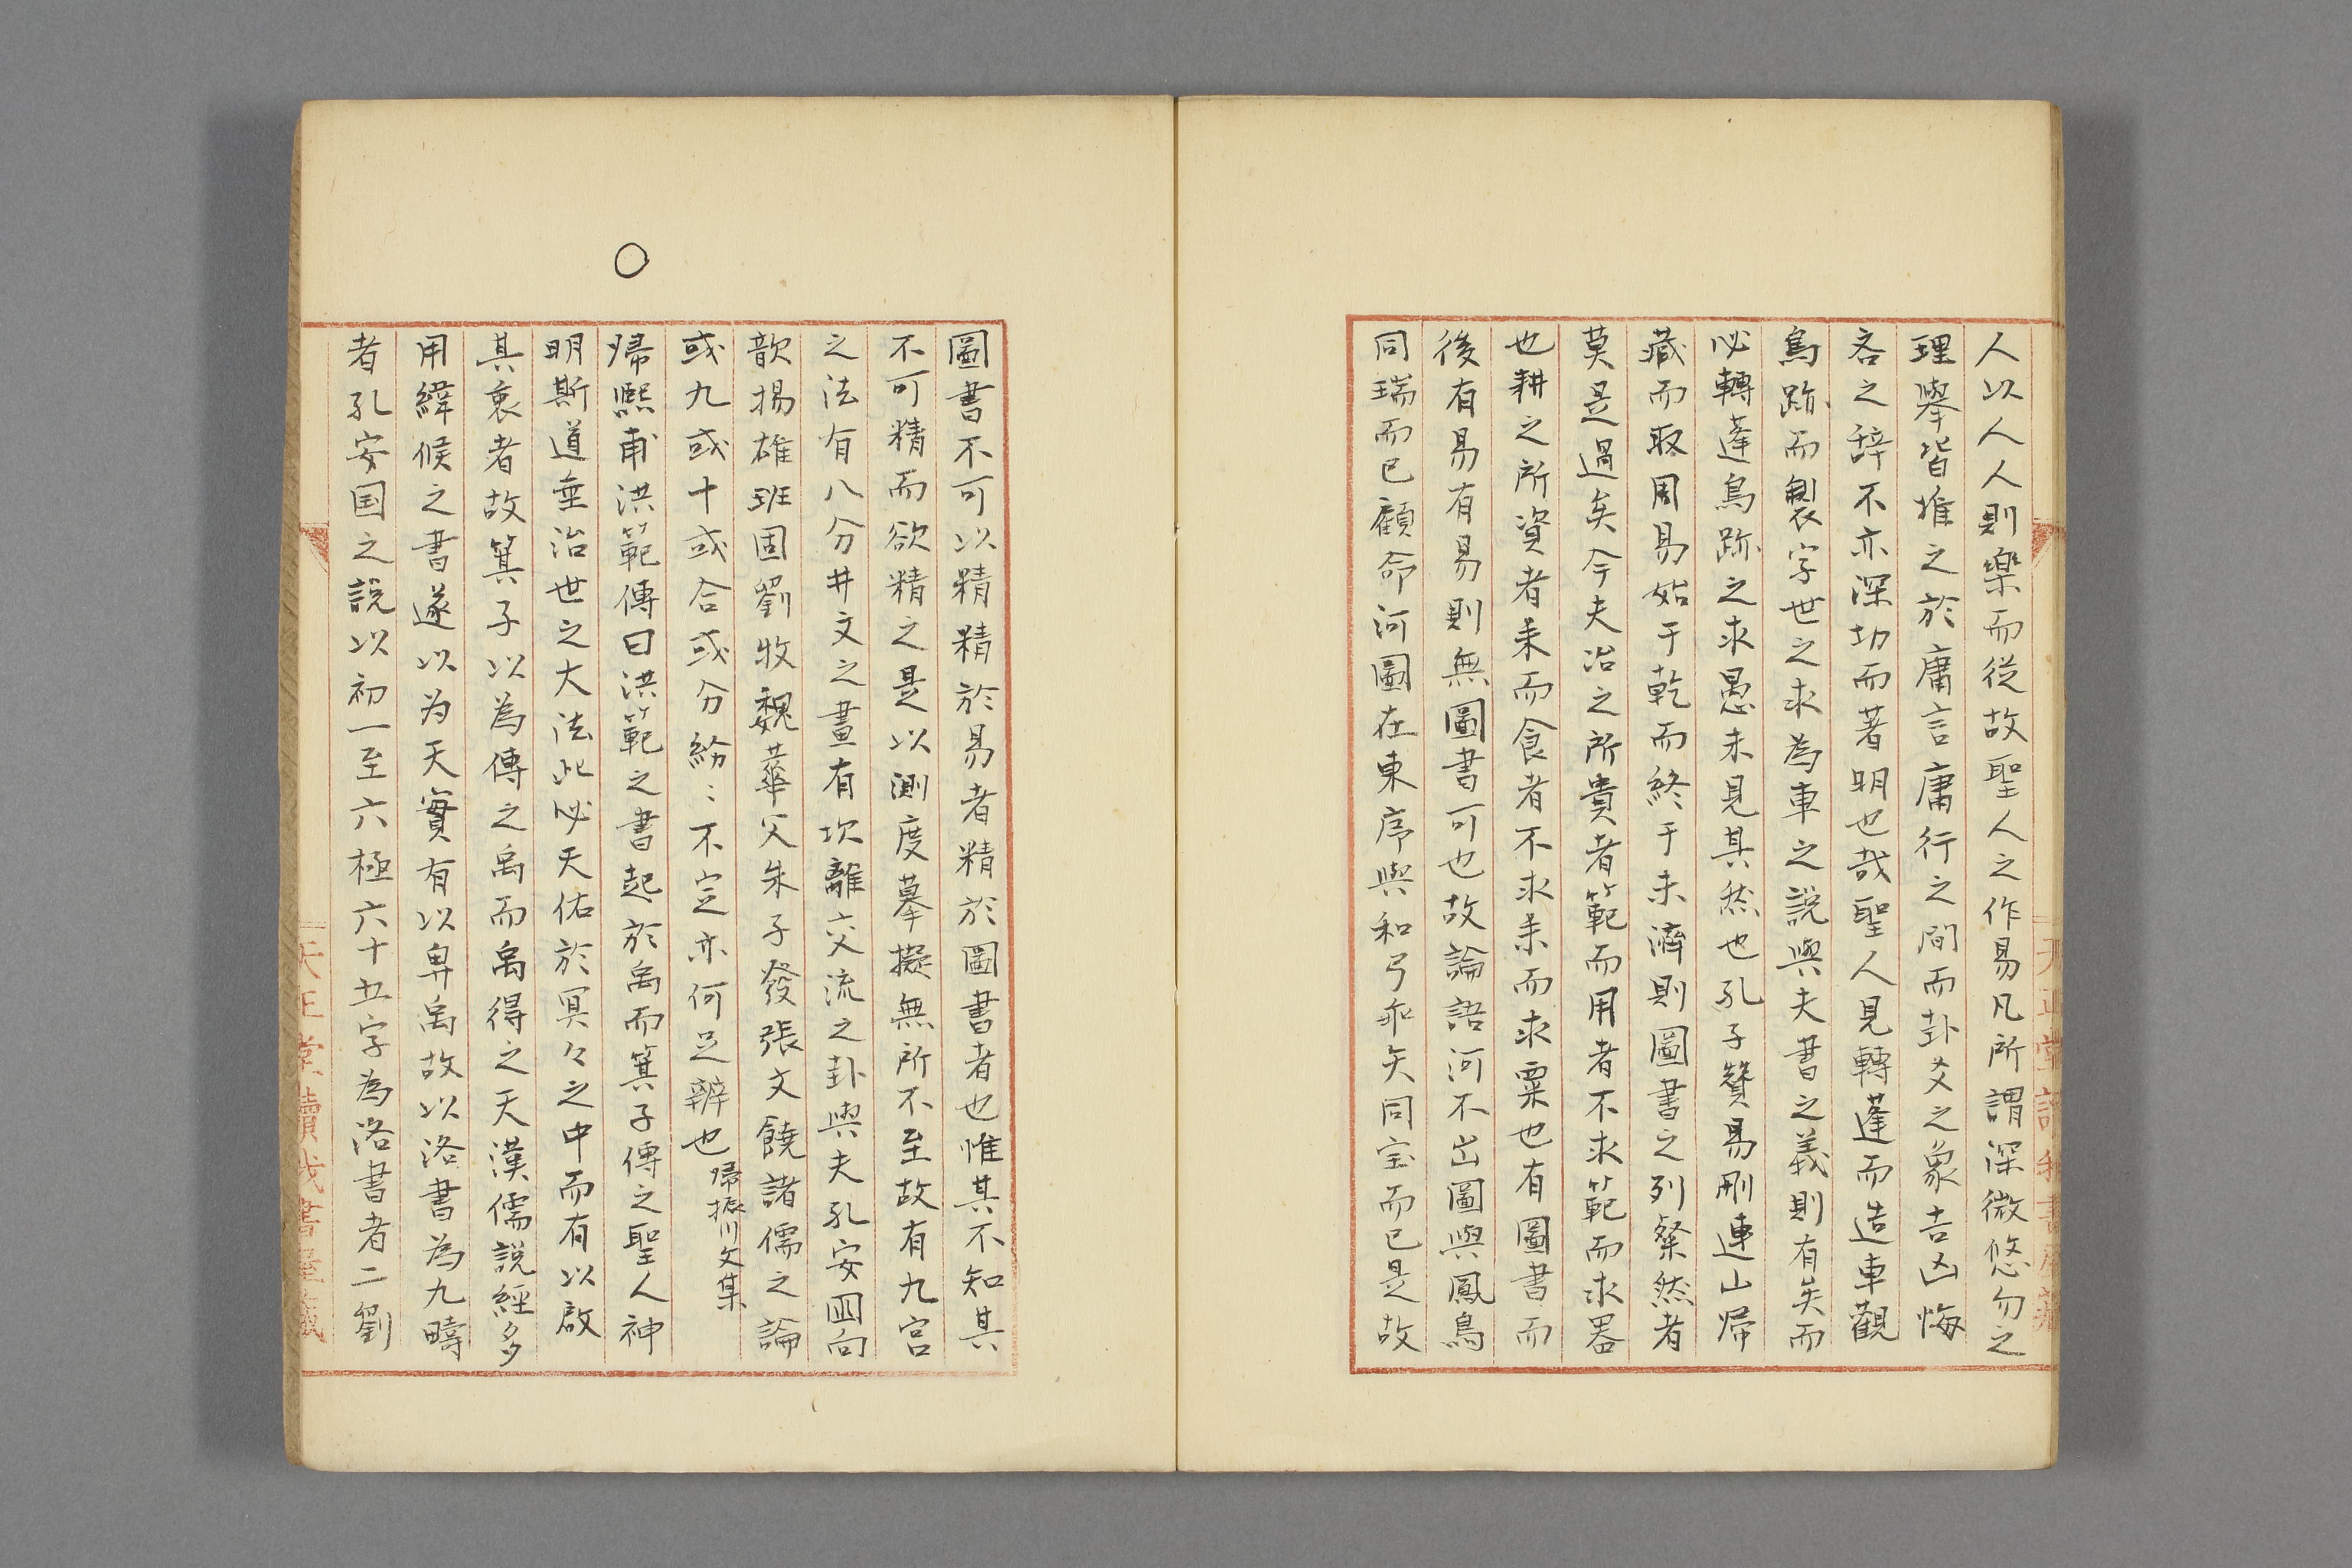 人以人人則樂而從故聖人之作易凡所謂深微悠勿之
理舉皆推之於庸言庸行之間而卦爻之象吉凶悔
吝之辞不亦深切而著明也哉聖人見轉蓬而造車觀
鳥跡而製字世之求為車之説與夫書之義則有矣而
必轉蓬鳥跡之求愚未見其然也孔子贊易刪連山歸
藏而取周易始于乾而終于未濟則圖書之列粲然者
莫是過矣今夫冶之所貴者範而用者不求範而求器
也耕之所資者耒而食者不求耒而求粟也有圖書而
後有易有易則無圖書可也故論語河不出圖與鳳鳥
同瑞而已顧命河圖在東序與和弓垂矢同宝而已是故
圖書不可以精精於易者精於圖書者也惟其不知其
不可精而欲精之是以測度摹擬無所不至故有九宮
之法有八分井文之畫有坎離交流之卦與夫孔安囯向
歆揚雄班固劉牧魏華父朱子發張文饒諸儒之論
或九或十或合或分紛〻不定亦何足辨也歸振川文集
○
歸熙甫洪範傳曰洪範之書起於禹而箕子傳之聖人神
明斯道垂治世之大法此必天佑於冥々之中而有以啟
其衷者故箕子以為傳之禹而禹得之天漢儒說經多
用緯候之書遂以为天實有以畀禹故以洛書為九疇
者孔安国之說以初一至六極六十五字為洛書者二劉